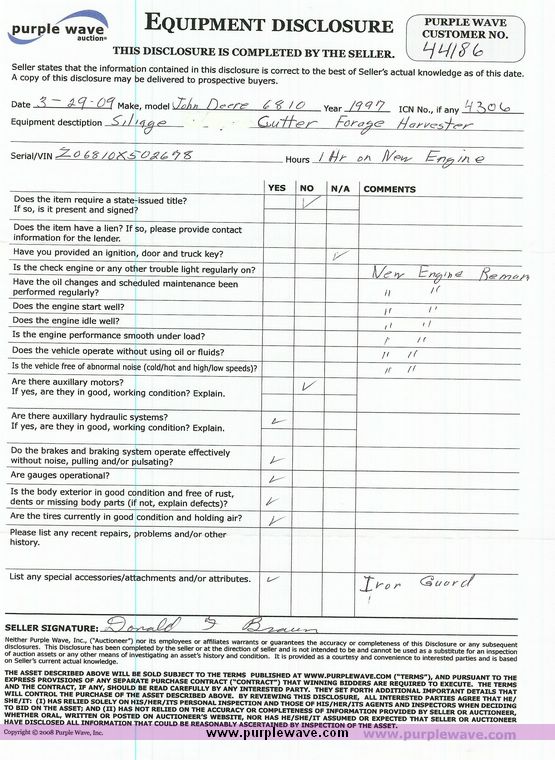 purple wave
auction®
EQUIPMENT DISCLOSURE
PURPLE WAVE
CUSTOMER NO.
44186
THIS DISCLOSURE IS COMPLETED BY THE SELLER.
Seller states that the information contained in this disclosure is correct to the best of Seller's actual knowledge as of this date.
A copy of this disclosure may be delivered to prospective buyers.
Date 3-29-09 Make, model John Deere 6810 Year 1997 ICN No., if any 4306
Equipment desctiption Silage Cutter Forage Harvester
Serial/VIN Z06810X502678 Hours 1 Hr on New Engine
YES NO N/A COMMENTS
Does the item require a state-issued title?
If so, is it present and signed?
Does the item have a lien? If so, please provide contact
information for the lender.
Have you provided an ignition, door and truck key?
Is the check engine or any other trouble light regularly on? New Engine Reman
Have the oil changes and scheduled maintenance been
performed regularly? " "
Does the engine start well? " "
Does the engine idle well? " "
Is the engine performance smooth under load? " "
Does the vehicle operate without using oil or fluids? " "
Is the vehicle free of abnormal noise (cold/hot and high/low speeds)? " "
Are there auxillary motors?
If yes, are they in good, working condition? Explain.
Are there auxillary hydraulic systems?
If yes, are they in good, working condition? Explain.
Do the brakes and braking system operate effectively
without noise, pulling and/or pulsating?
Are gauges operational?
Is the body exterior in good condition and free of rust,
dents or missing body parts (if not, explain defects)?
Are the tires currently in good condition and holding air?
Please list any recent repairs, problems and/or other
history.
List any special accessories/attachments and/or attributes. Iron Guard
SELLER SIGNATURE: Donald F Braun
Neither Purple Wave, Inc., ("Auctioneer") nor its employees or affiliates warrants or guarantees the accuracy or completeness of this Disclosure or any subsequent
disclosures. This Disclosure has been completed by the seller or at the direction of seller and is not intended to be and cannot be used as a substitute for an inspection
of auction assets or any other means of investigating an asset's history and condition. It is provided as a courtesy and convenience to interested parties and is based
on Seller's current actual knowledge.
THE ASSET DESCRIBED ABOVE WILL BE SOLD SUBJECT TO THE TERMS PUBLISHED AT WWW.PURPLEWAVE.COM ("TERMS"), AND PURSUANT TO THE
EXPRESS PROVISIONS OF ANY SEPARATE PURCHASE CONTRACT ("CONTRACT") THAT WINNING BIDDERS ARE REQUIRED TO EXECUTE. THE TERMS
AND THE CONTRACT, IF ANY, SHOULD BE READ CAREFULLY BY ANY INTERESTED PARTY. THEY SET FORTH ADDITIONAL IMPORTANT DETAILS THAT
WILL CONTROL THE PURCHASE OF THE ASSET DESCRIBED ABOVE. BY REVIEWING THIS DISCLOSURE, ALL INTERESTED PARTIES AGREE THAT HE/
SHE/IT: (I) HAS RELIED SOLELY ON HIS/HER/ITS PERSONAL INSPECTION AND THOSE OF HIS/HER/ITS AGENTS AND INSPECTORS WHEN DECIDING
TO BID ON THE ASSET; AND (II) HAS NOT RELIED ON THE ACCURACY OR COMPLETENESS OF INFORMATION PROVIDED BY SELLER OR AUCTIONEER,
WHETHER ORAL, WRITTEN OR POSTED ON AUCTIONEER'S WEBSITE, NOR HAS HE/SHE/IT ASSUMED OR EXPECTED THAT SELLER OR AUCTIONEER
HAVE DISCLOSED ALL INFORMATION THAT COULD BE REASONABLY ASCERTAINED BY INSPECTION OF THE ASSET.
Copyright © 2008 Purple Wave, Inc.
www.purplewave.com www.purplewave.com